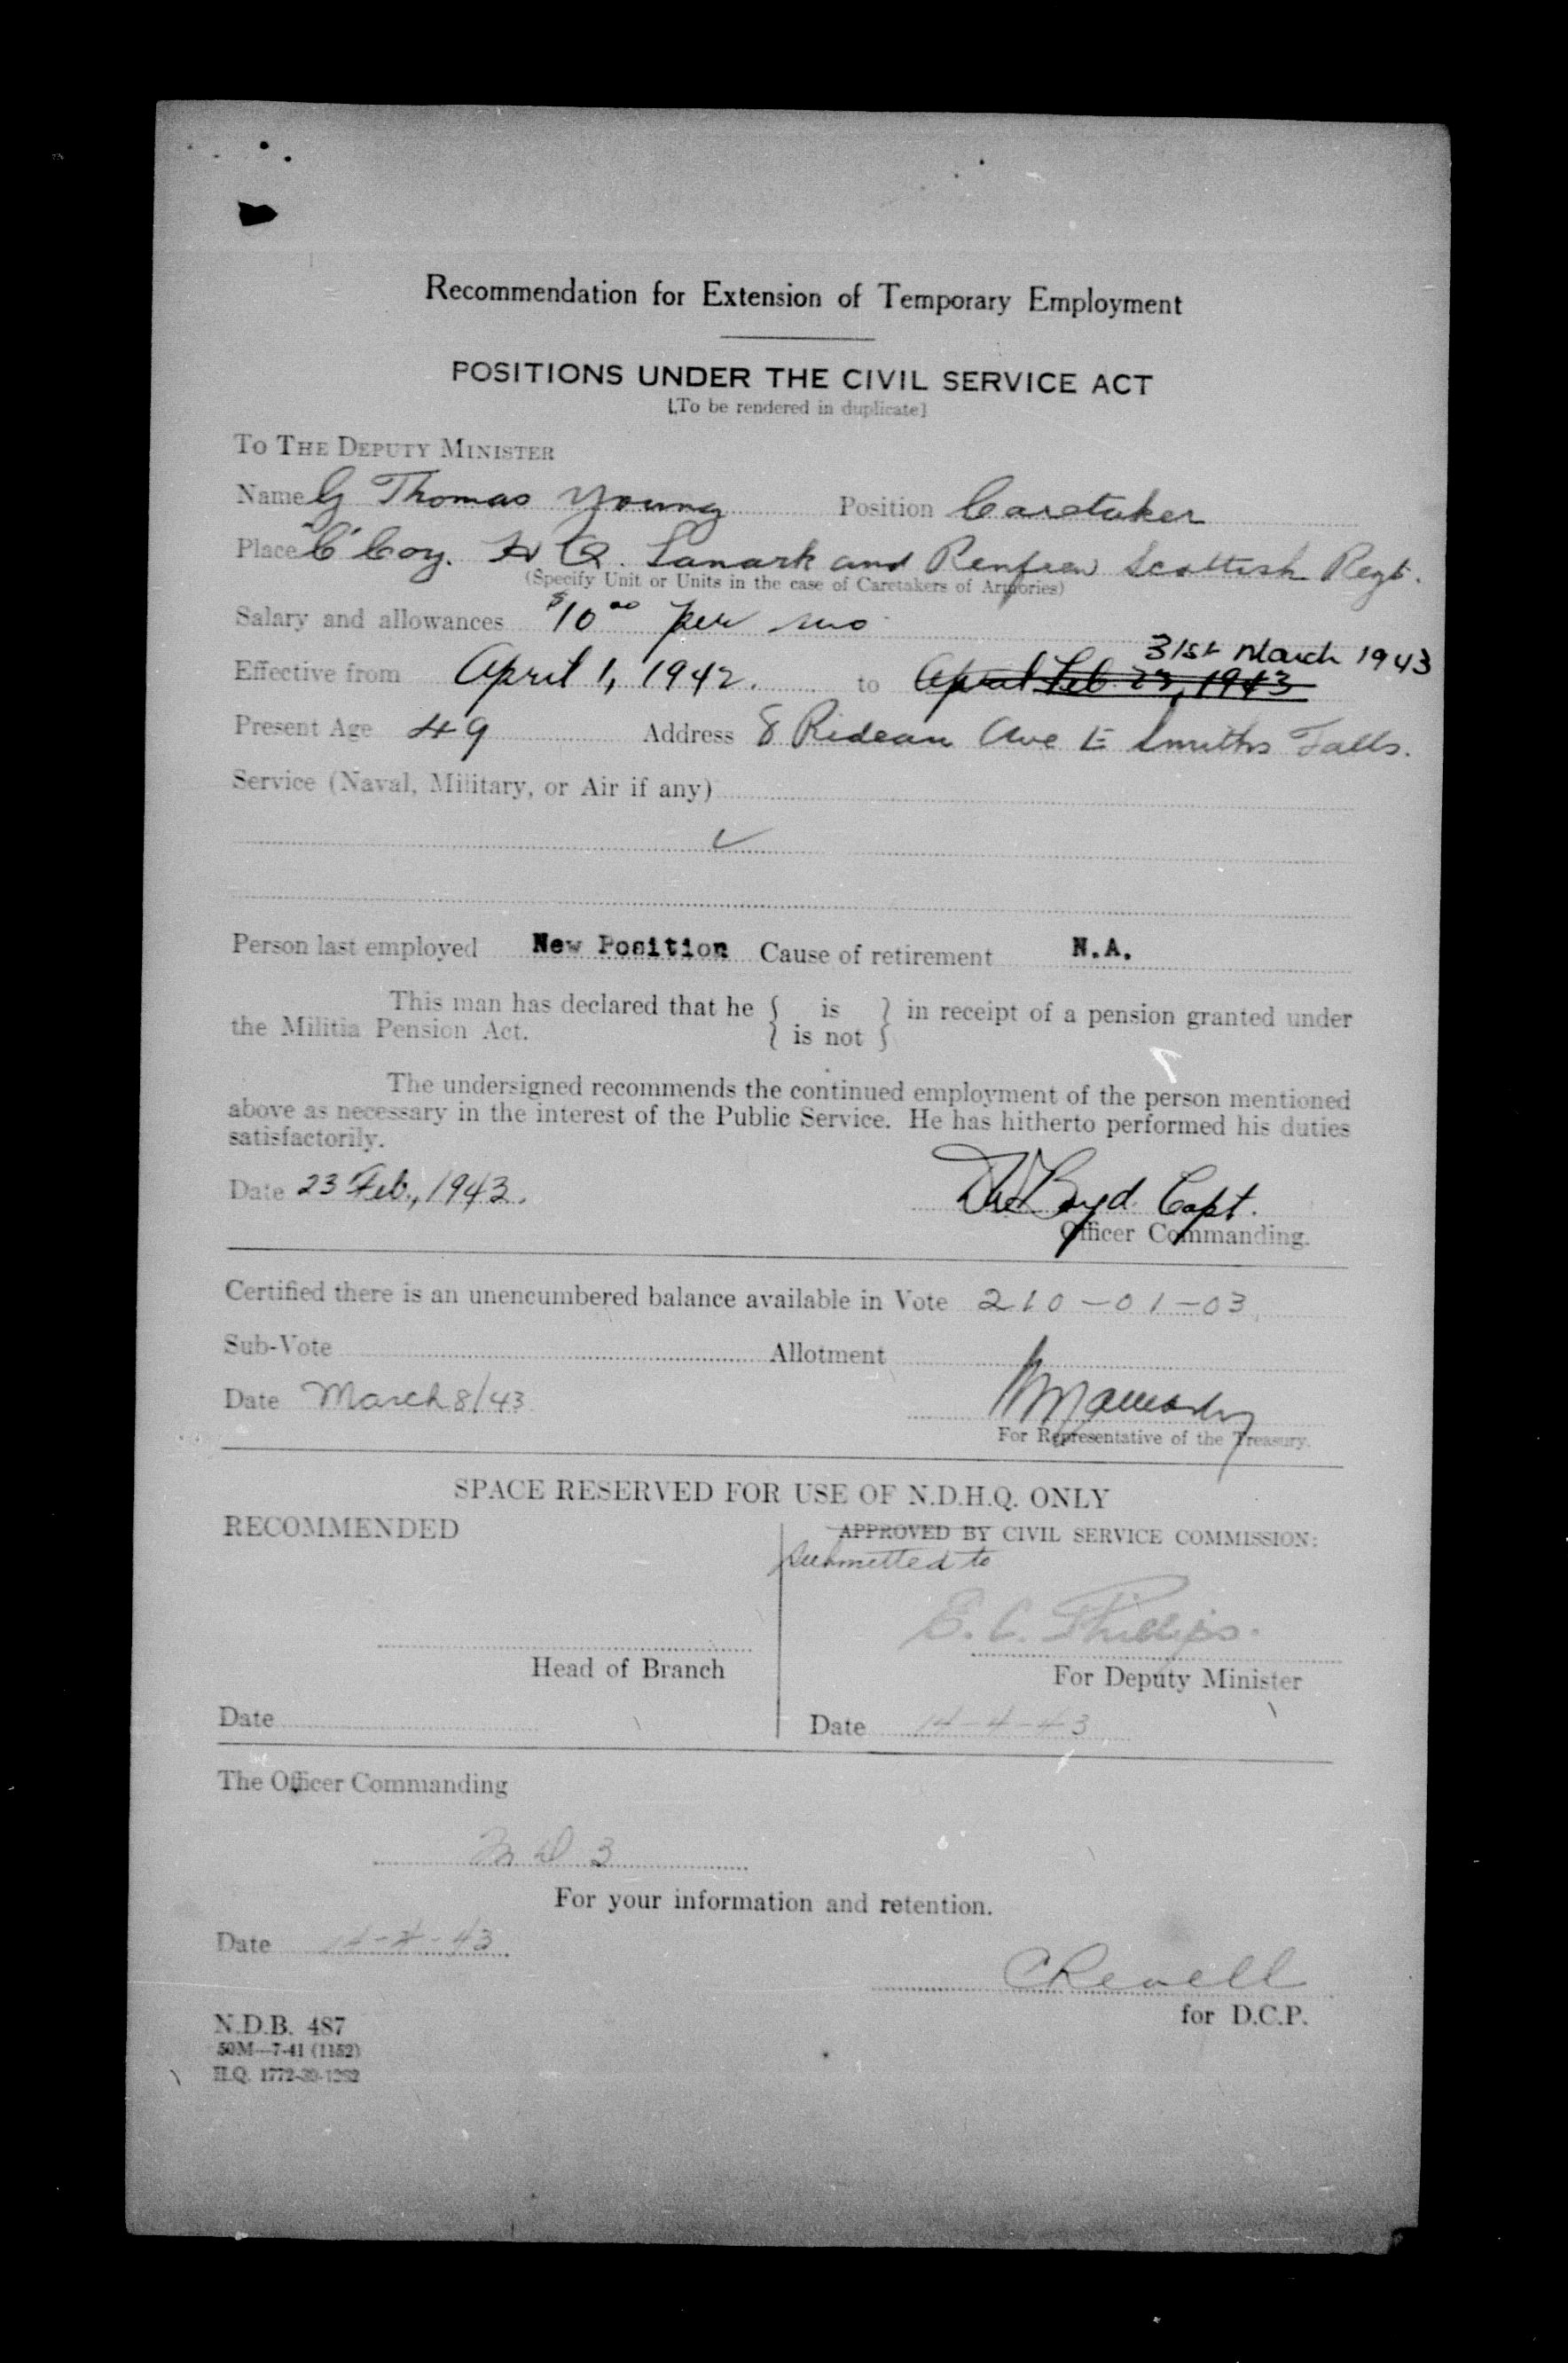 Recommendation for Extension of Temporary Employment
POSITIONS UNDER THE CIVIL SERVICE ACT
[To be rendered in duplicate]
To THE DEPUTY MINISTER
Name G Thomas Young Position Caretaker
Place "C" Coy. H Q. Lanark and Renfrew Scottish Regt.
(Specify Unit or Units in the case of Caretakers of Armories)
Salary and allowances $10 00 per mo
31st March 1943
Effective from April 1, 1942. to April Feb. 23, 1943
Present Age 49 Address 8 Rideau Ave E Smiths Falls.
Service (Naval, Military, or Air if any)
Person last employed New Position Cause of retirement N.A.
This man has declared that he { is } in receipt of a pension granted under
the Militia Pension Act. { is not }
The undersigned recommends the continued employment of the person mentioned
above as necessary in the interest of the Public Service. He has hitherto performed his duties
satisfactorily.
Date 23 Feb., 1943. Boyd Capt.
Officer Commanding.
Certified there is an unencumbered balance available in Vote 210-01-03
Sub-Vote Allotment
Date March 8/43
For Representative of the Treasury.
SPACE RESERVED FOR USE OF N.D.H.Q. ONLY
RECOMMENDED APPROVED BY CIVIL SERVICE COMMISSION:
Submitted to
E. C. Phillips.
Head of Branch For Deputy Minister
Date Date 14-4-43
The Officer Commanding
M D 3
For your information and retention.
Date 14-4-43
CRevell
for D.C.P.
N.D.B. 487
50M—7-41 (1152)
H.Q. 1772-39-1262